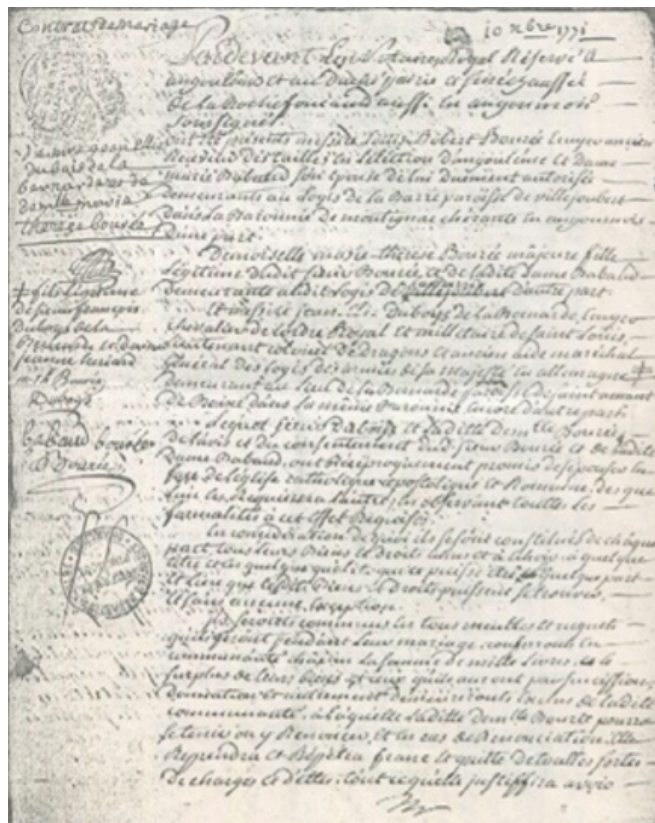 Contrat de mariage
10 xbre 1771
Pardevant Les Notaires Royal Réservé à
angoulême et au Duché pairie et sénéchaussée
de la Rochefoucauld aussi en angoumois
soussignés
ont été présents messire Louis Robert Bourée Ecuyer ancien
Receveur des tailles en l'élection d'angoulesme et dame
marie Babaud son épouse de lui duement autorisée
demeurants au Logis de la Barre paroisse de villejoubert
dans la Baronnie de montignac charante en angoumois
d'une part.
Demoiselle marie-thérèse Bourée majeure fille
Légitime dudit sieur Bourée et de ladite dame Babaud
demeurante audit Logis de d'autre part.
Et messire jean Elie Duboys de la Bernarde, Ecuyer
chevalier de l'ordre Royal et militaire de saint Louis,
Lieutenant colonel de dragons et ancien aide maréchal
général des logis des armées de sa majesté en allemagne
demeurant au Lieu de la Bernarde paroisse de saint amant
de Boixe dans la même Baronnie encore d'autre part
Lequel sieur Duboys et laditte demlle Bourée
de l'avis et du consentement dud. sieur Bourée et de ladite
Dame Babaud, ont Réciproquement promis de s'épouser en
face de l'église catholique apostolique et Romaine, des que
l'un les Requierera l'autre; en observant touttes les
formalités à cet effet Requises
En considération de quoi ils se sont constitués de chaque
part tous leurs Biens et Droits échus et à échoir à quelque
titre et de quelque qualité que ce puisse être quelque part
et Lieu que lesdits Biens et droits puissent se trouver,
et sans aucune exception.
Seront communs en tous meubles et acquets
qu'ils feront pendant leur mariage, conferront en
communauté chacun la somme de mille Livres, et le
surplus de leurs biens et ceux qu'ils auront par succession,
donnation et autrement demeureront exclus de ladite
communauté, à laquelle laditte demlle Bourée pourra
se tenir ou y Renoncer, et en cas de Renonciation Elle
Reprendra et Répétera franc et quitte de touttes sortes
de charges et dettes, tout ce qu'elle justiffira avoir
jean Elie
Dubois de la
bernardere de
demlle marie
thereze bourée
fils Légitime
de sieur françois
duboys de la
Bernarde et dame
jeanne
Duboys
babaud bourée
Bourée